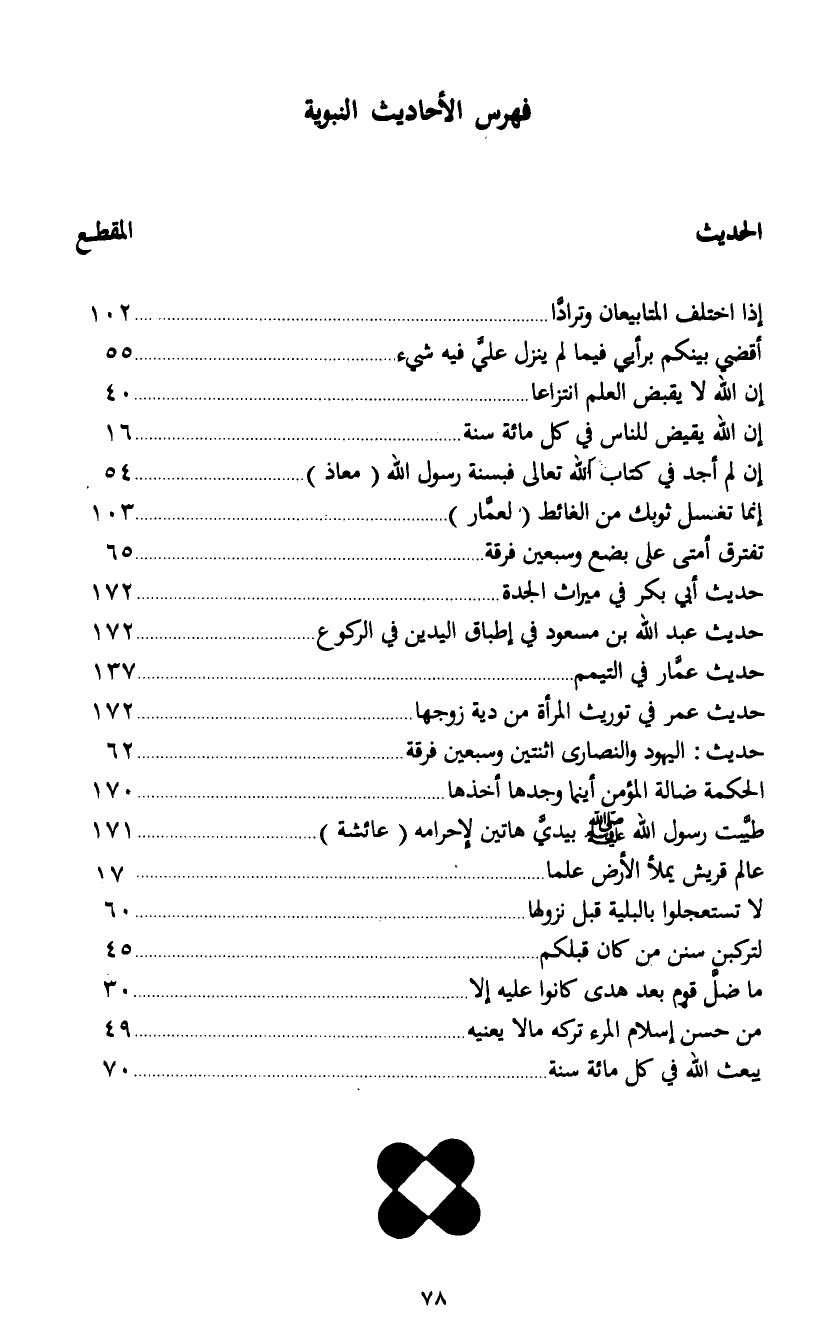 فهرس الأحاديث النبوية
الحديث المقطع
إذا اختلف المتابيعان وترادَّا ........ ١٠٢
أقضي بينكم برأيي فيما لم ينزل عليَّ فيه شيء ........ ٥٥
إن الله لا يقبض العلم انتزاعا ........ ٤٠
إن الله يقيض للناس في كل مائة سنة ........ ١٦
إن لم أجد في كتاب الله تعالى فبسنة رسول الله ( معاذ ) ........ ٥٤
إنما تغسل ثوبك من الغائط ( لعمَّار ) ........ ١٠٣
تفترق أمتى على بضع وسبعين فرقة ........ ٦٥
حديث أبي بكر في ميراث الجدة ........ ١٧٢
حديث عبد الله بن مسعود في إطباق اليدين في الركوع ........ ١٧٢
حديث عمَّار في التيمم ........ ١٣٧
حديث عمر في توريث المرأة من دية زوجها ........ ١٧٢
حديث : اليهود والنصارى اثنتين وسبعين فرقة ........ ٦٢
الحكمة ضالة المؤمن أينما وجدها أخذها ........ ١٧٠
طيَّبت رسول الله ﷺ بيديَّ هاتين لإحرامه ( عائشة ) ........ ١٧١
عالم قريش يملأ الأرض علما ........ ١٧
لا تستعجلوا بالبلية قبل نزولها ........ ٦٠
لتركبن سنن من كان قبلكم ........ ٤٥
ما ضلَّ قوم بعد هدى كانوا عليه إلا ........ ٣٠
من حسن إسلام المرء تركه مالا يعنيه ........ ٤٩
يبعث الله في كل مائة سنة ........ ٧٠
٧٨